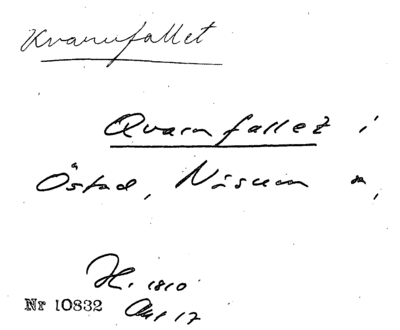 Kvarnfallet
Qvarnfallet i
Östad, Näsum sn,
H. 1810
Nr 10832 17